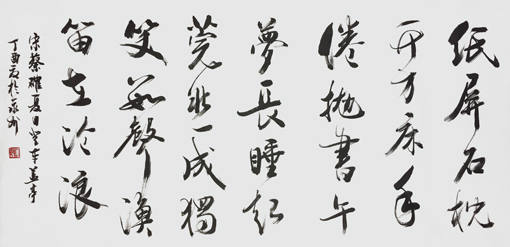 紙屏石枕
竹方床手
倦拋書午
夢長睡起
莞然成獨
笑數聲漁
笛在滄浪
宋蔡確夏日登車蓋亭
丁酉夏於蘇州